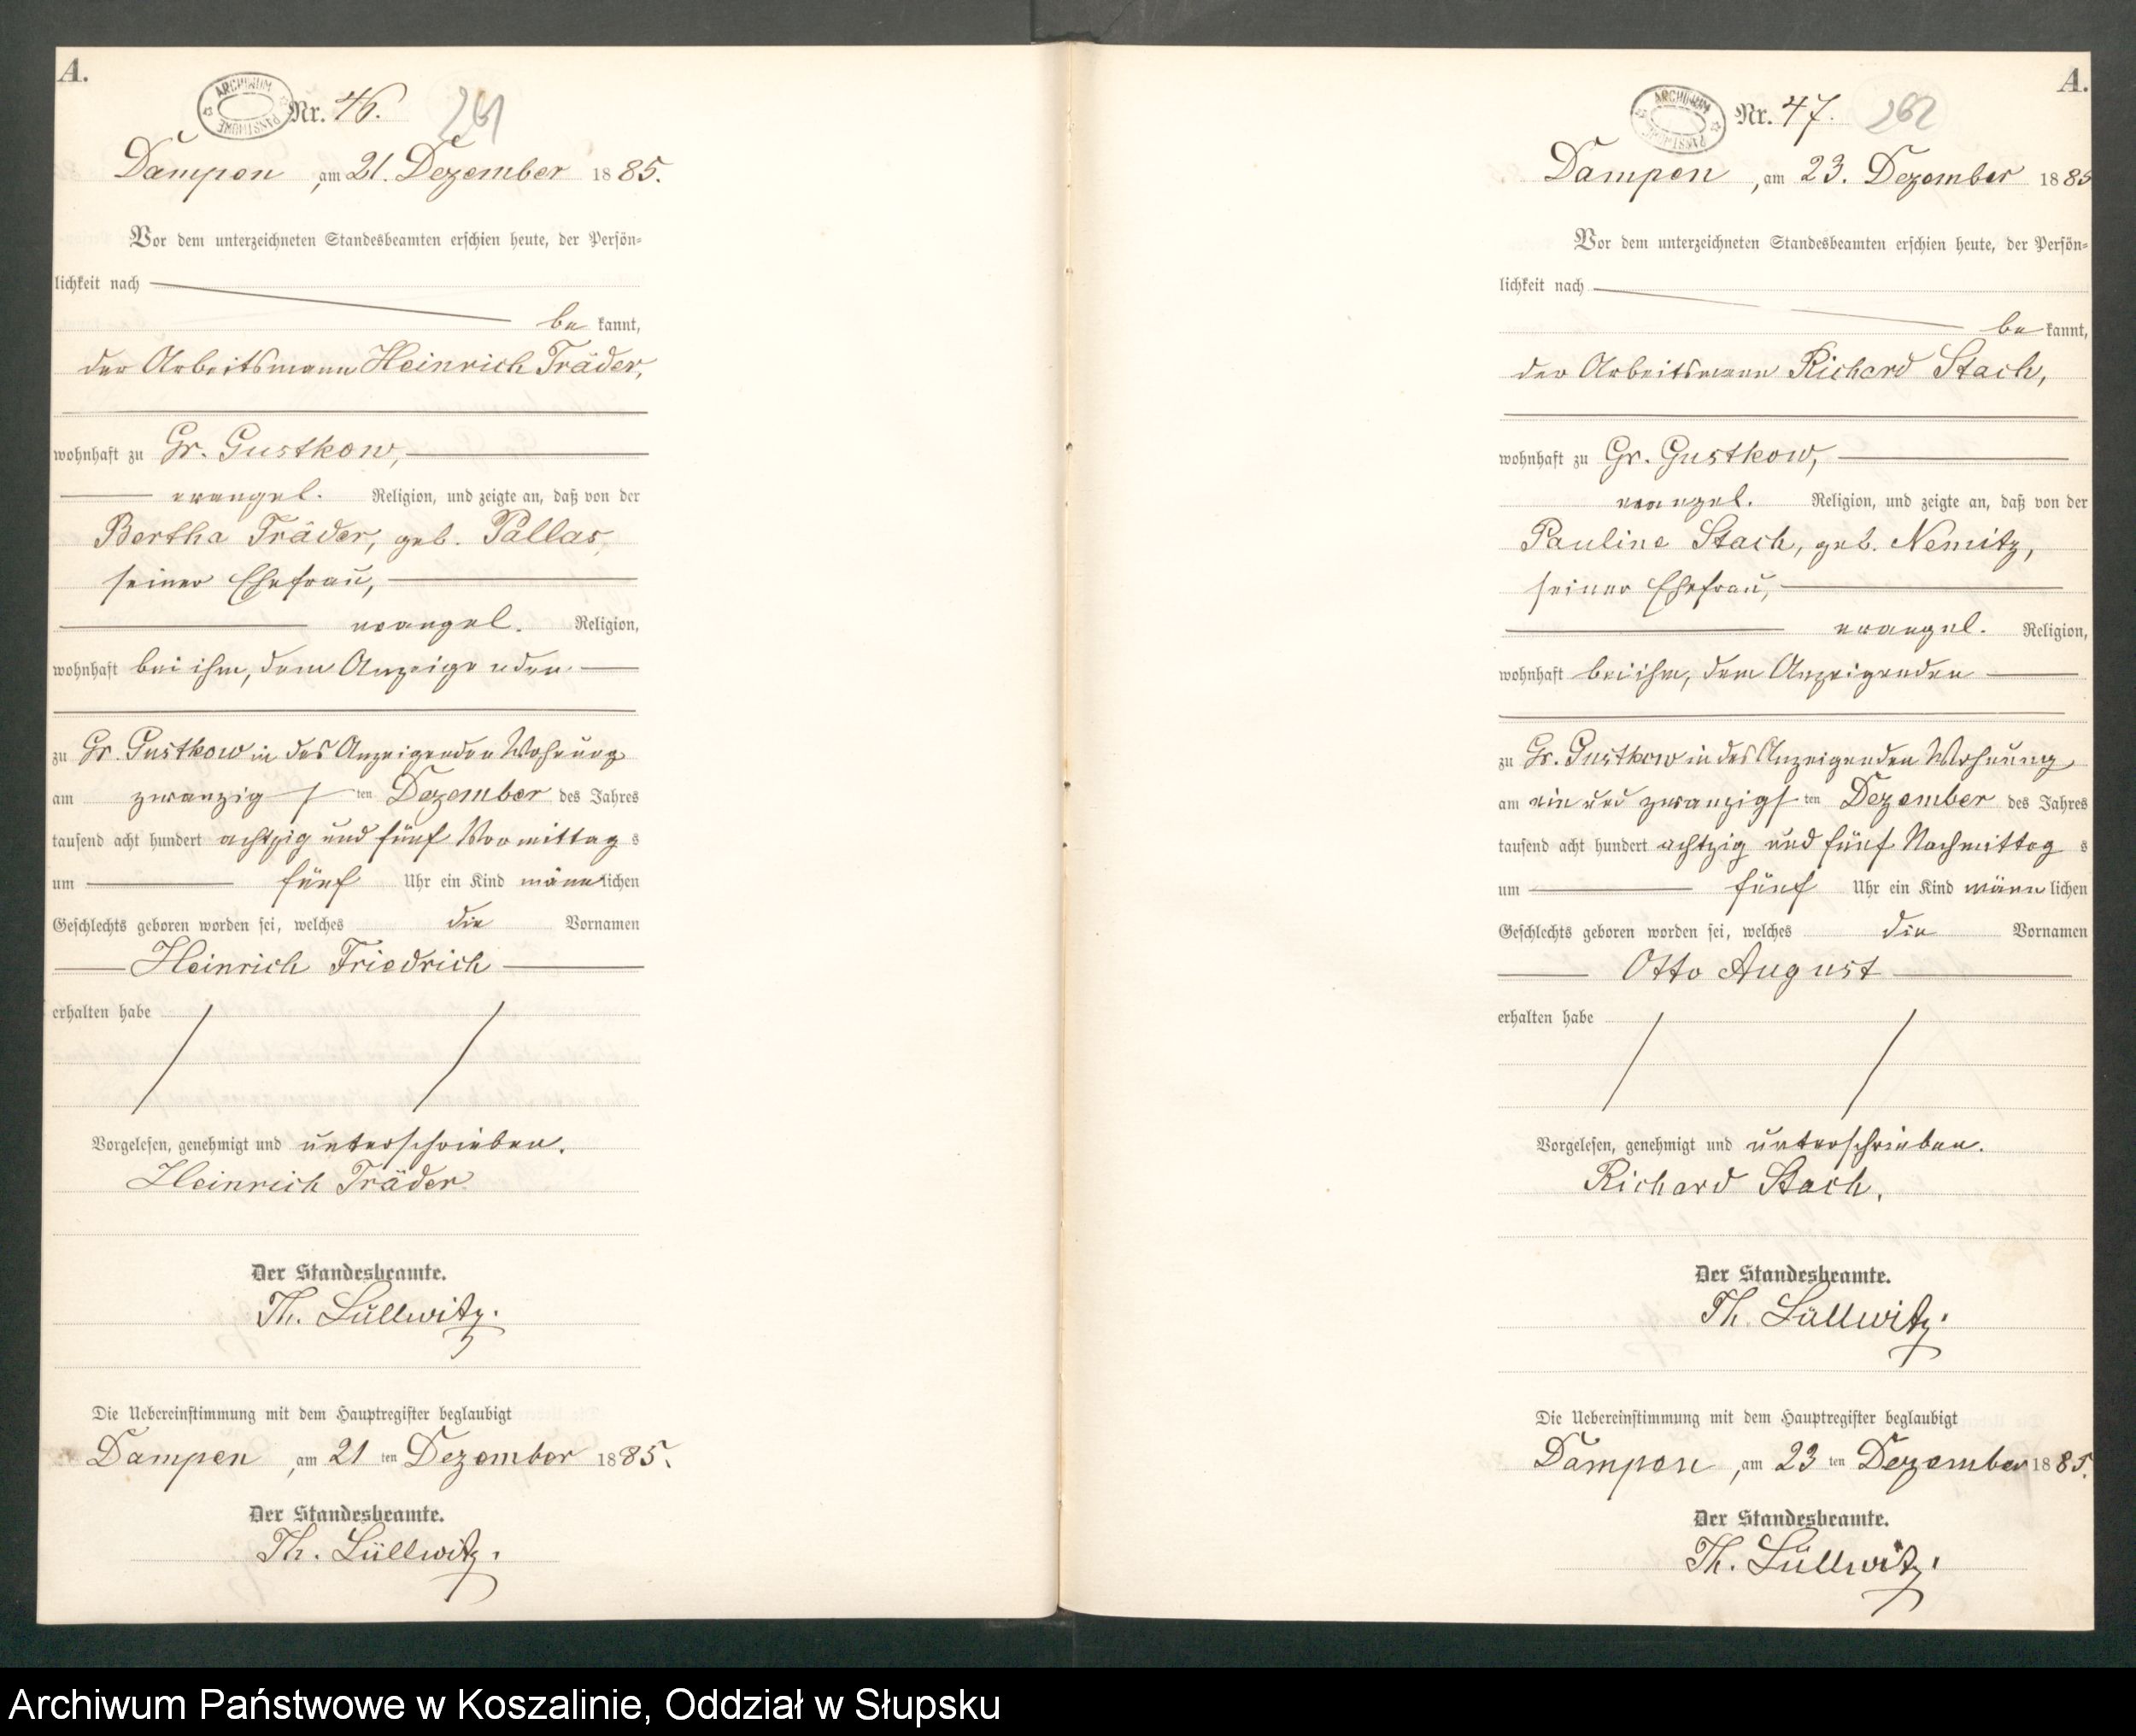 A.
ARCHIWUM
PAŃSTWOWE
Nr. 46.
261
Dampen, am 21. Dezember 1885.
Vor dem unterzeichneten Standesbeamten erschien heute, der Persön-
lichkeit nach
be kannt,
der Arbeitsmann Heinrich Träder,
wohnhaft zu Gr. Gustkow,
evangel. Religion, und zeigte an, daß von der
Bertha Träder, geb. Pallas,
seiner Ehefrau,
evangel. Religion,
wohnhaft bei ihm, dem Anzeigenden
zu Gr. Gustkow in des Anzeigenden Wohnung
am zwanzigs ten Dezember des Jahres
tausend acht hundert achtzig und fünf Vormittag s
um fünf Uhr ein Kind männlichen
Geschlechts geboren worden sei, welches die Vornamen
Heinrich Friedrich
erhalten habe
Vorgelesen, genehmigt und unterschrieben.
Heinrich Träder
Der Standesbeamte.
Th. Lüllwitz.
Die Uebereinstimmung mit dem Hauptregister beglaubigt
Dampen, am 21 ten Dezember 1885.
Der Standesbeamte.
Th. Lüllwitz.
A.
ARCHIWUM
PAŃSTWOWE
Nr. 47.
262
Dampen, am 23. Dezember 1885
Vor dem unterzeichneten Standesbeamten erschien heute, der Persön-
lichkeit nach
be kannt,
der Arbeitsmann Richard Stach,
wohnhaft zu Gr. Gustkow,
evangel. Religion, und zeigte an, daß von der
Pauline Stach, geb. Nemitz,
seiner Ehefrau,
evangel. Religion,
wohnhaft bei ihm, dem Anzeigenden
zu Gr. Gustkow in des Anzeigenden Wohnung
am ein und zwanzigs ten Dezember des Jahres
tausend acht hundert achtzig und fünf Nachmittag s
um fünf Uhr ein Kind männ lichen
Geschlechts geboren worden sei, welches die Vornamen
Otto August
erhalten habe
Vorgelesen, genehmigt und unterschrieben.
Richard Stach.
Der Standesbeamte.
Th. Lüllwitz.
Die Uebereinstimmung mit dem Hauptregister beglaubigt
Dampen, am 23 ten Dezember 1885.
Der Standesbeamte.
Th. Lüllwitz.
Archiwum Państwowe w Koszalinie, Oddział w Słupsku